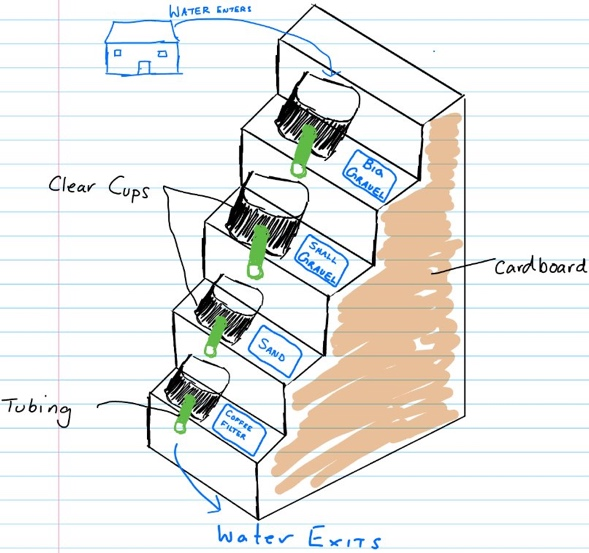 WATER ENTERS
BIG
GRAVEL
Clear Cups
SMALL
GRAVEL
Cardboard
SAND
Tubing
COFFEE
FILTER
Water Exits